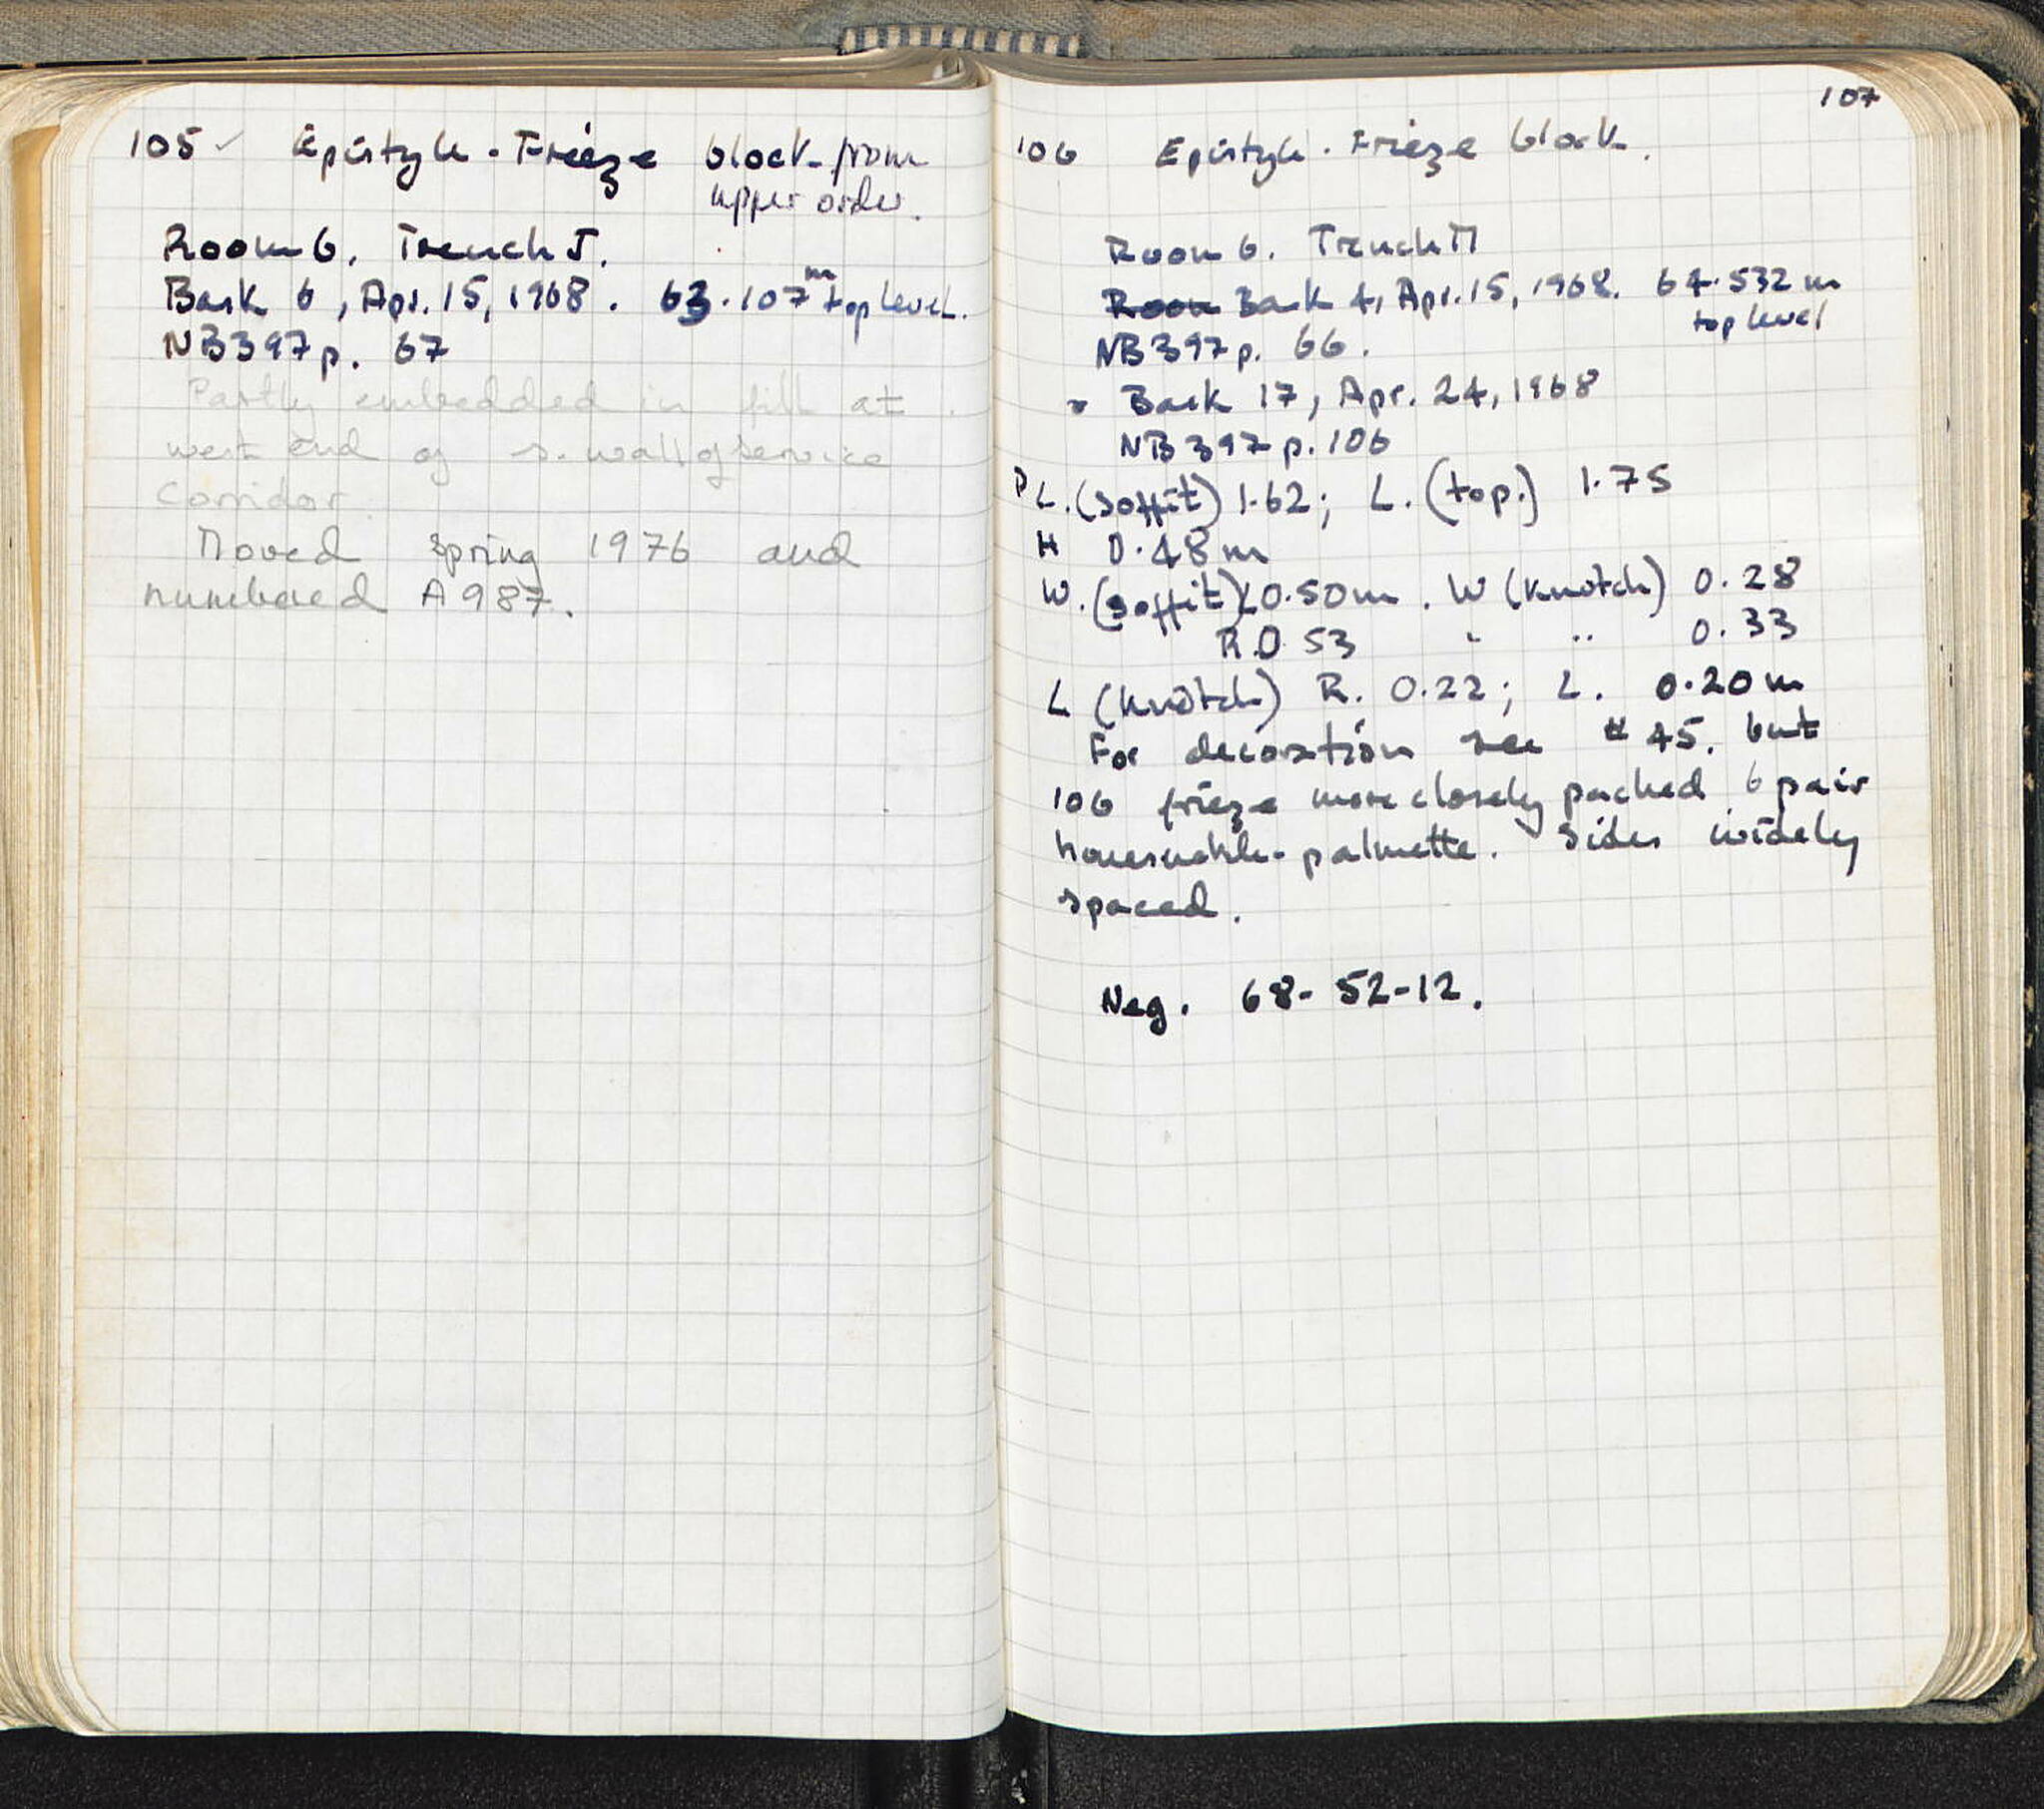 105 ✓ Epistyle-Frieze block from
upper order.
Room 6, Trench J.
Bask 6, Apr. 15, 1968. 63.107 m top level.
NB 397 p. 67
Partly embedded in fill at
west end of s. wall of service
Corridor.
Moved spring 1976 and
numbered A 987.
107
106 Epistyle-Frieze block.
Room 6. Trench M
Room Bask 4, Apr. 15, 1968. 64.532 m
top level
NB 397 p. 66.
Bask 17, Apr. 24, 1968
NB 397 p. 106
P L. (soffit) 1.62; L. (top.) 1.75
H 0.48 m
W. (soffit) L 0.50 m. W (knotch) 0.28
R. 0.53 " " 0.33
L (knotch) R. 0.22; L. 0.20 m
For decoration see # 45. but
106 frieze more closely packed 6 pair
honesuckle-palmette. Sides widely
spaced.
Neg. 68-52-12.